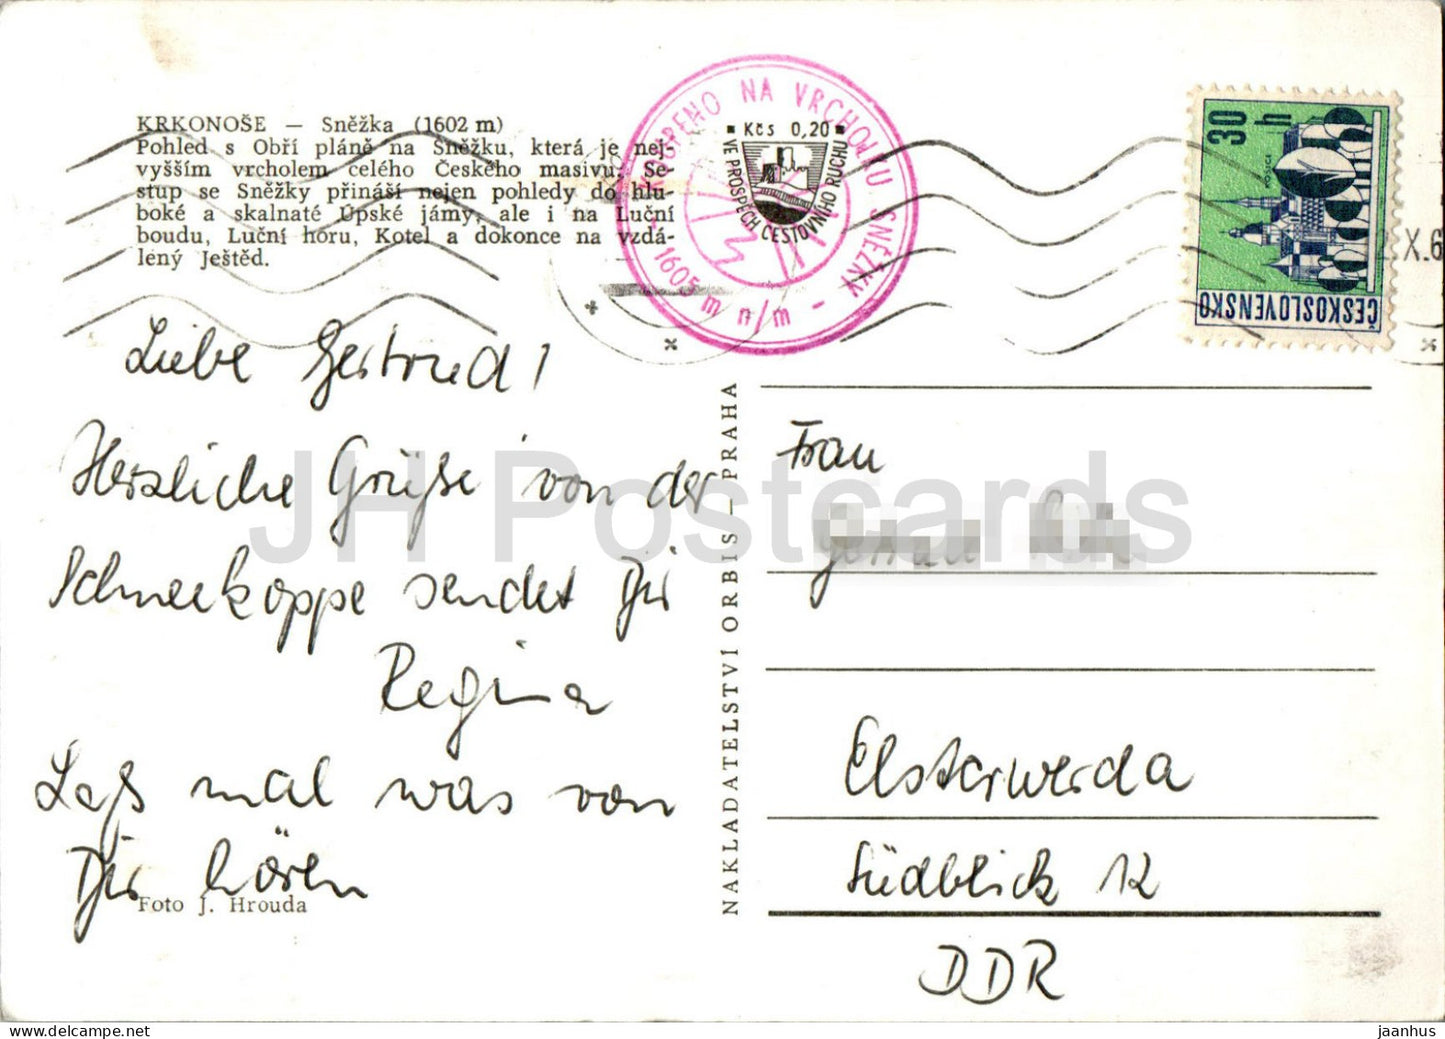 KRKONOŠE — Sněžka (1602 m)
Pohled s Obří pláně na Sněžku, která je nej-
vyšším vrcholem celého Českého masivu. Se-
stup se Sněžky přináší nejen pohledy do hlu-
boké a skalnaté Úpské jámy, ale i na Luční
boudu, Luční horu, Kotel a dokonce na vzdá-
lený Ještěd.
NA VRCHOLKU SNĚŽKY
1605 m n/m
Kčs 0,20
VE PROSPĚCH CESTOVNÍHO RUCHU
30 h
KOŠICE
ČESKOSLOVENSKO
X.6
Liebe Gertrud!
Herzliche Grüße von der
Schneekoppe sendet Dir
Regina
Laß mal was von
Dir hören
Foto J. Hrouda
NAKLADATELSTVÍ ORBIS — PRAHA
Frau
Elsterwerda
Südblick 12
DDR
JH Postcards
jaanhus